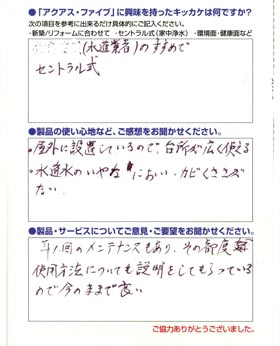 ●「アクアス・ファイブ」に興味を持ったキッカケは何ですか?
次の項目を参考に出来るだけ具体的にご記入ください。
・新築/リフォームに合わせて ・セントラル式(家中浄水) ・環境面・健康面など
(水道業者)のすすめで
セントラル式
●製品の使い心地など、ご感想をお聞かせください。
・屋外に設置しているので、台所が広く使える
・水道水のいやな におい、カビくささが
ない
●製品・サービスについてご意見・ご要望をお聞かせください。
年1回のメンテナンスもあり、その都度
使用方法についても説明をしてもらっている
ので今のままで良い
ご協力ありがとうございました。